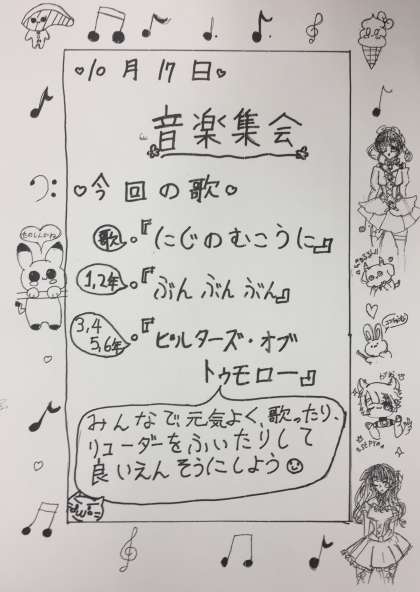 10月17日
音楽集会
今回の歌
歌 。『にじのむこうに』
1,2年 。『ぶんぶんぶん』
3,4
5,6年 。『ビルダーズ・オブ
トゥモロー』
みんなで、元気よく、歌ったり、
リコーダーをふいたりして
良いえんそうにしよう
たのしんでね